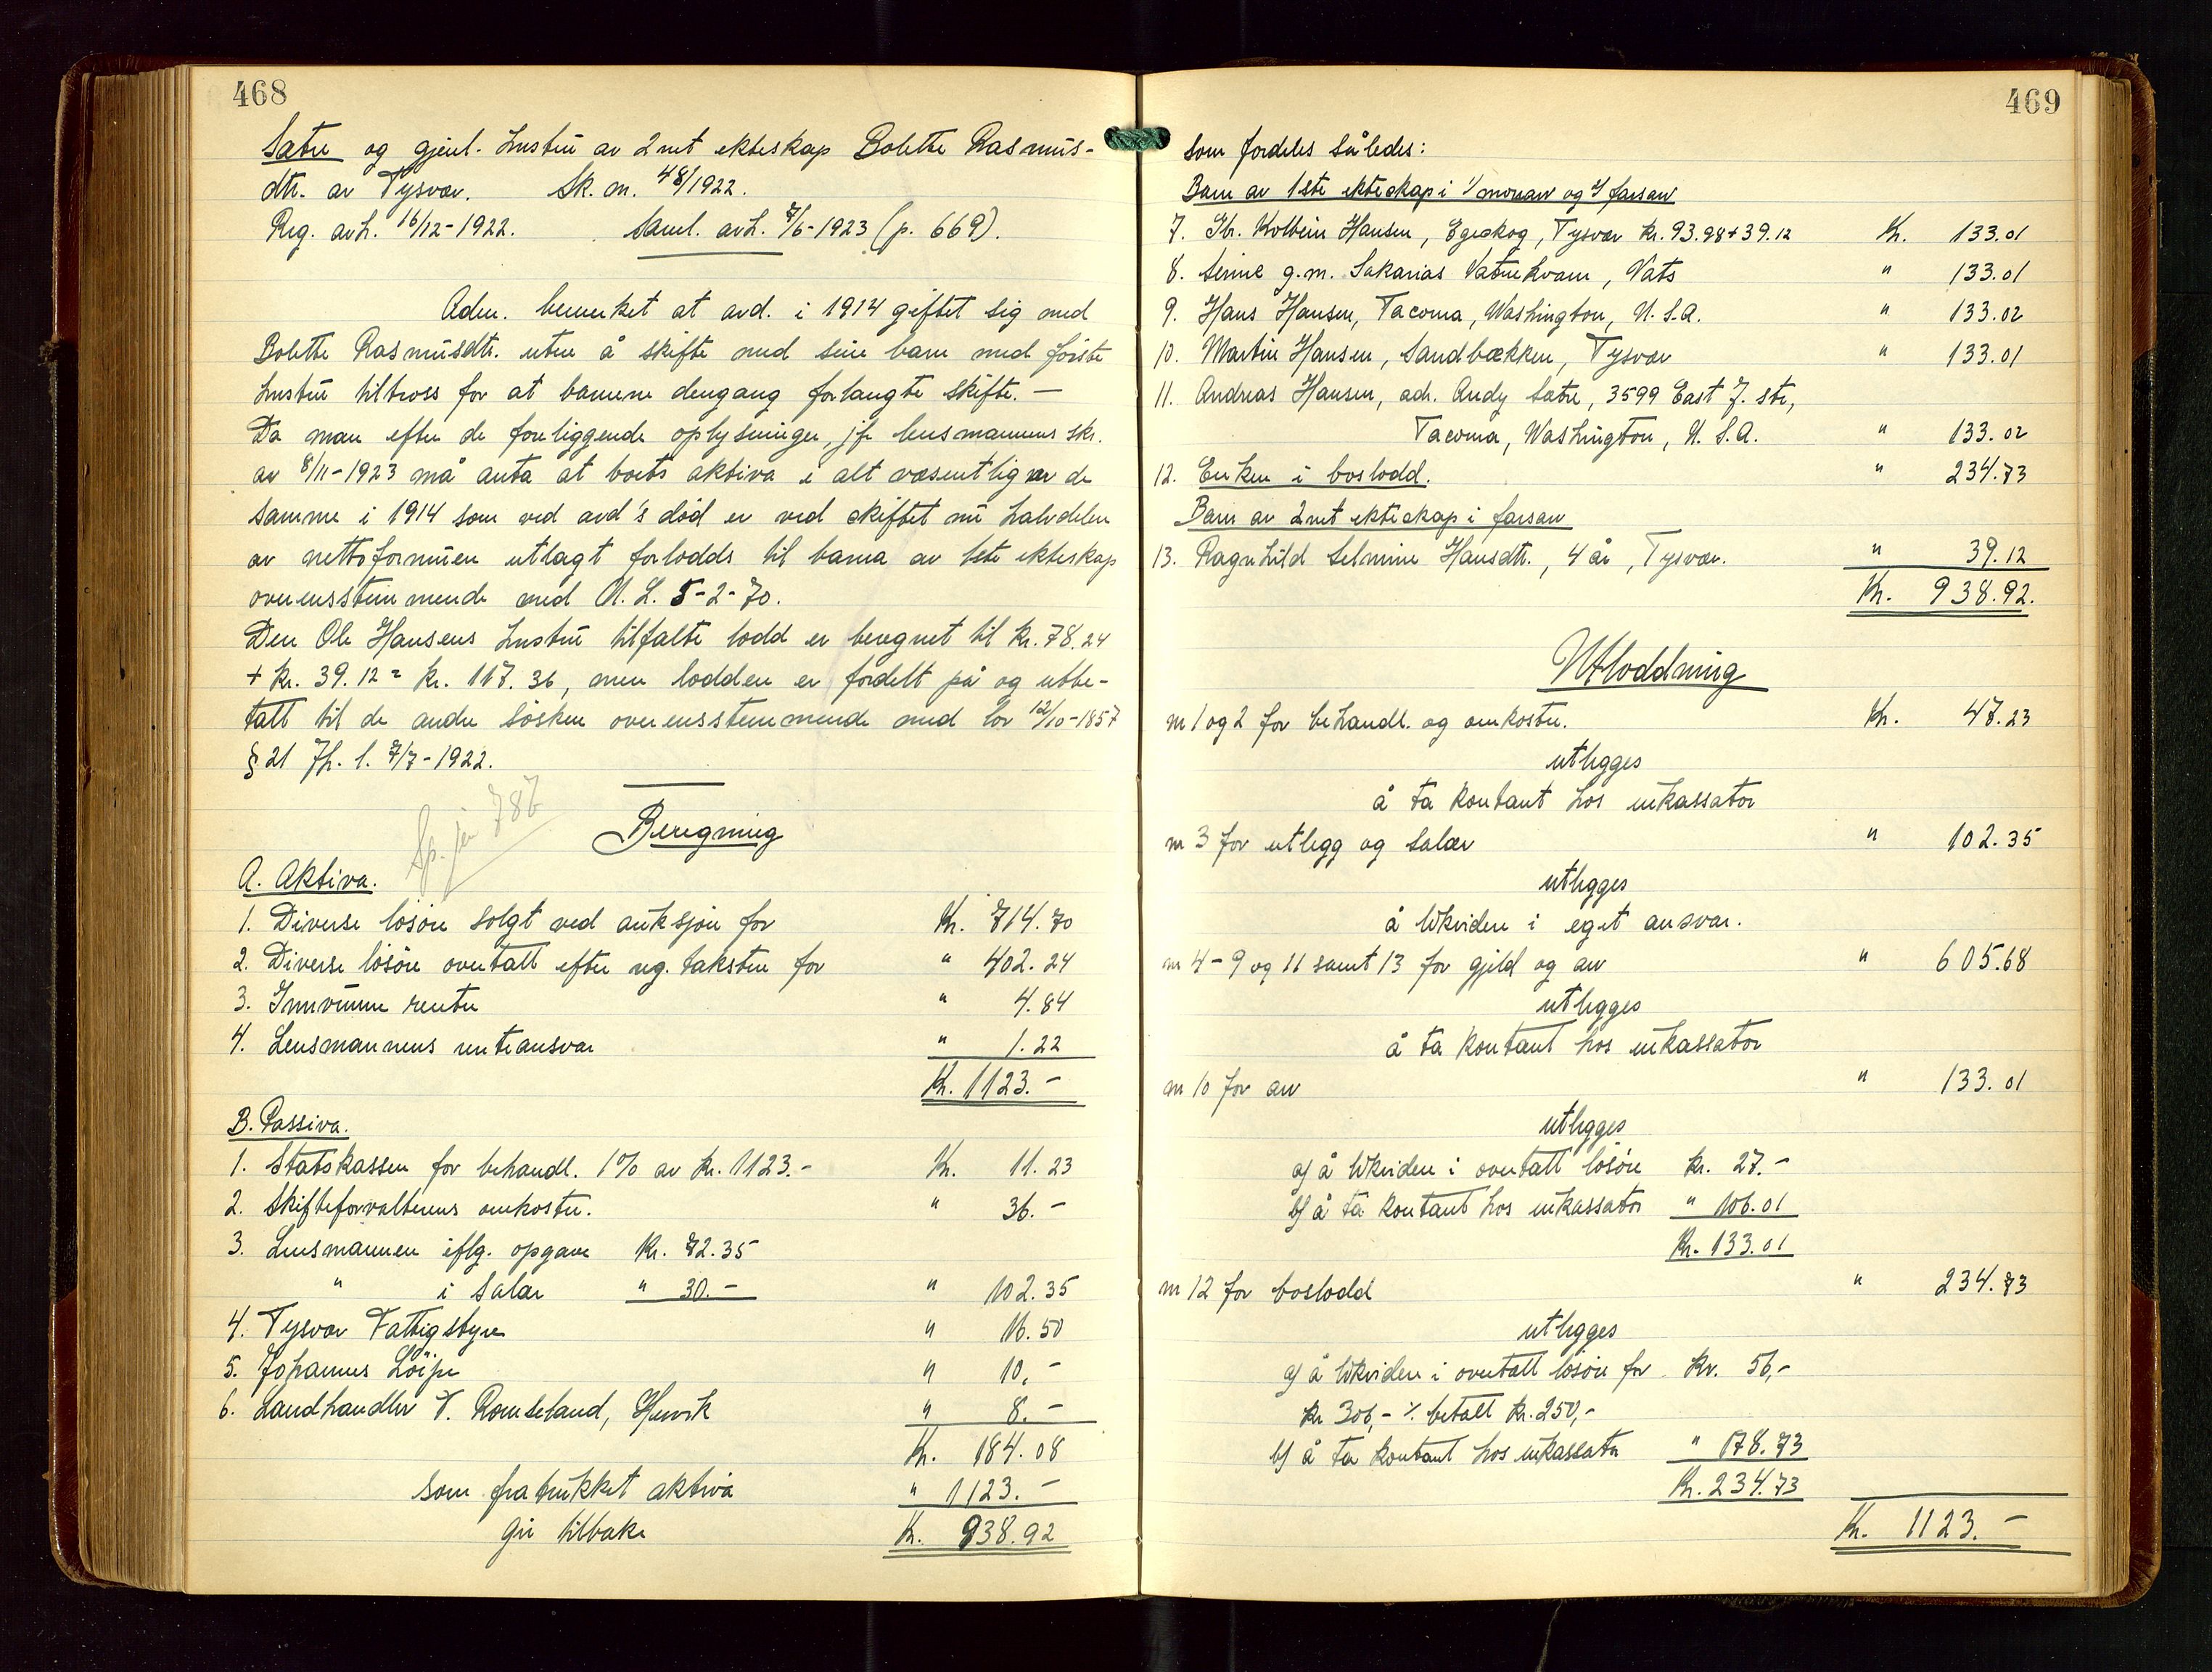 468
Sætre og gjenl. hustru av 2net ekteskap Bolette Rasmus-
dtr. av Tysvær. Sk. m. 48/1922.
Reg. avh. 16/12-1922. Saml. avh. 7/6-1923 (p. 669).
Adm. bemerket at avd. i 1914 giftet sig med
Bolette Rasmusdtr. uten å skifte med sine barn med første
hustru tiltross for at barnene dengang forlangte skifte. —
Da man efter de foreliggende oplysninger, jfr lensmannens skr.
av 8/11-1923 må anta at boets aktiva i alt væsentlig var de
samme i 1914 som ved avd's död er ved skiftet nu halvdelen
av nettoformuen utlagt forlodds til barna av 1ste ekteskap
overensstemmende med N. L. 5-2-70.
Den Ole Hansens hustru tilfalte lodd er beregnet til kr. 78.24
+ kr. 39.12 = kr. 117.36, men lodden er fordelt på og utbe-
talt til de andre søsken overensstemmende med lov 12/10-1857
§ 21 jfr. l. 7/7-1922.
Sp. jr 786
Beregning
A. Aktiva.
1. Diverse lösöre solgt ved auksjon for Kr. 714.70
2. Diverse lösöre overtatt efter reg. taksten for " 402.24
3. Innvunne renter " 4.84
4. Lensmannens renteansvar " 1.22
Kr. 1123.-
B. Passiva.
1. Statskassen for behandl. 1% av kr. 1123.- Kr. 11.23
2. Skifteforvalterens omkostn. " 36.-
3. Lensmannen iflg. opgave Kr. 72.35
" i salær " 30.- " 102.35
4. Tysvær Fattigstyre " 16.50
5. Johannes Löipe " 10,-
6. Landhandler T. Romseland, Hervik " 8.-
Kr. 184.08
som fratrukket aktiva " 1123.-
gir tilbake Kr. 938.92
469
som fordeles således:
Barn av 1ste ekteskap i 1/ morsarv og 1/ farsarv
7. Gbr. Kolbein Hansen, Egeskog, Tysvær Kr. 93.98+39.12 Kr. 133.01
8. Serine g.m. Sakarias Vatnekvam, Vats " 133.01
9. Hans Hansen, Tacoma, Washington, U. S.A. " 133.02
10. Martin Hansen, Sandbækken, Tysvær " 133.01
11. Andreas Hansen, adr. Andy Sætre, 3599 East J. str,
Tacoma, Washington, U. S.A. " 133.02
12. Enken i boslodd. " 234.73
Barn av 2net ekteskap i farsarv
13. Ragnhild Selmine Hansdtr., 4 år, Tysvær. " 39.12
Kr. 938.92.
Utlodding
m 1 og 2 for behandl. og omkostn. Kr. 47.23
utlegges
å ta kontant hos inkassator
m 3 for utlegg og salær " 102.35
utlegges
å likvidere i eget ansvar.
m 4-9 og 11 samt 13 for gjeld og arv " 605.68
utlegges
å ta kontant hos inkassator
m 10 for arv " 133.01
utlegges
a) å likvidere i overtatt lösöre kr. 27.-
b) å ta kontant hos inkassator " 106.01
Kr. 133.01
m 12 for boslodd " 234.73
utlegges
a) å likvidere i overtatt lösöre for Kr. 56,-
kr 306,- ./. betalt kr. 250,-
b) å ta kontant hos inkassator " 178.73
Kr. 234.73
Kr. 1123.-